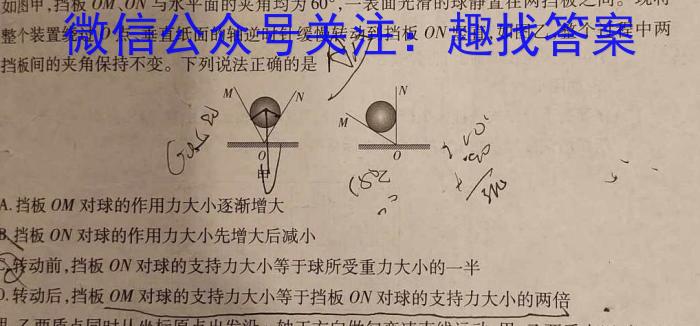 如图甲,挡板 OM、ON 与水平面的夹角均为 60°,一表面光滑的球静置在两挡板之间。现将
整个装置绕 O 点、垂直纸面的轴逆时针缓慢转动到挡板 ON 竖直,如图乙,整个过程中两
微信公众号关注:趣找答案
挡板间的夹角保持不变。下列说法正确的是
M N
O
甲
N
M
O
A.挡板 OM 对球的作用力大小逐渐增大
B.挡板 ON 对球的作用力大小先增大后减小
C.转动前,挡板 ON 对球的支持力大小等于球所受重力大小的一半
D.转动后,挡板 OM 对球的支持力大小等于挡板 ON 对球的支持力大小的两倍